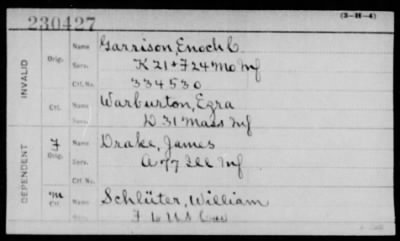 230427
(3-H-4)
INVALID
Orig.
Name Garrison, Enoch C.
Serv. K 21 + F 24 Mo Inf
Ctf. No. 334530
Ctf.
Name Warburton, Ezra
Serv. D 31 Mass Inf
DEPENDENT
F
Orig.
Name Drake, James
Serv. A 77 Ill Inf
Ctf. No.
M
Ctf.
Name Schlüter, William
Serv. F 6 U.S. Cav